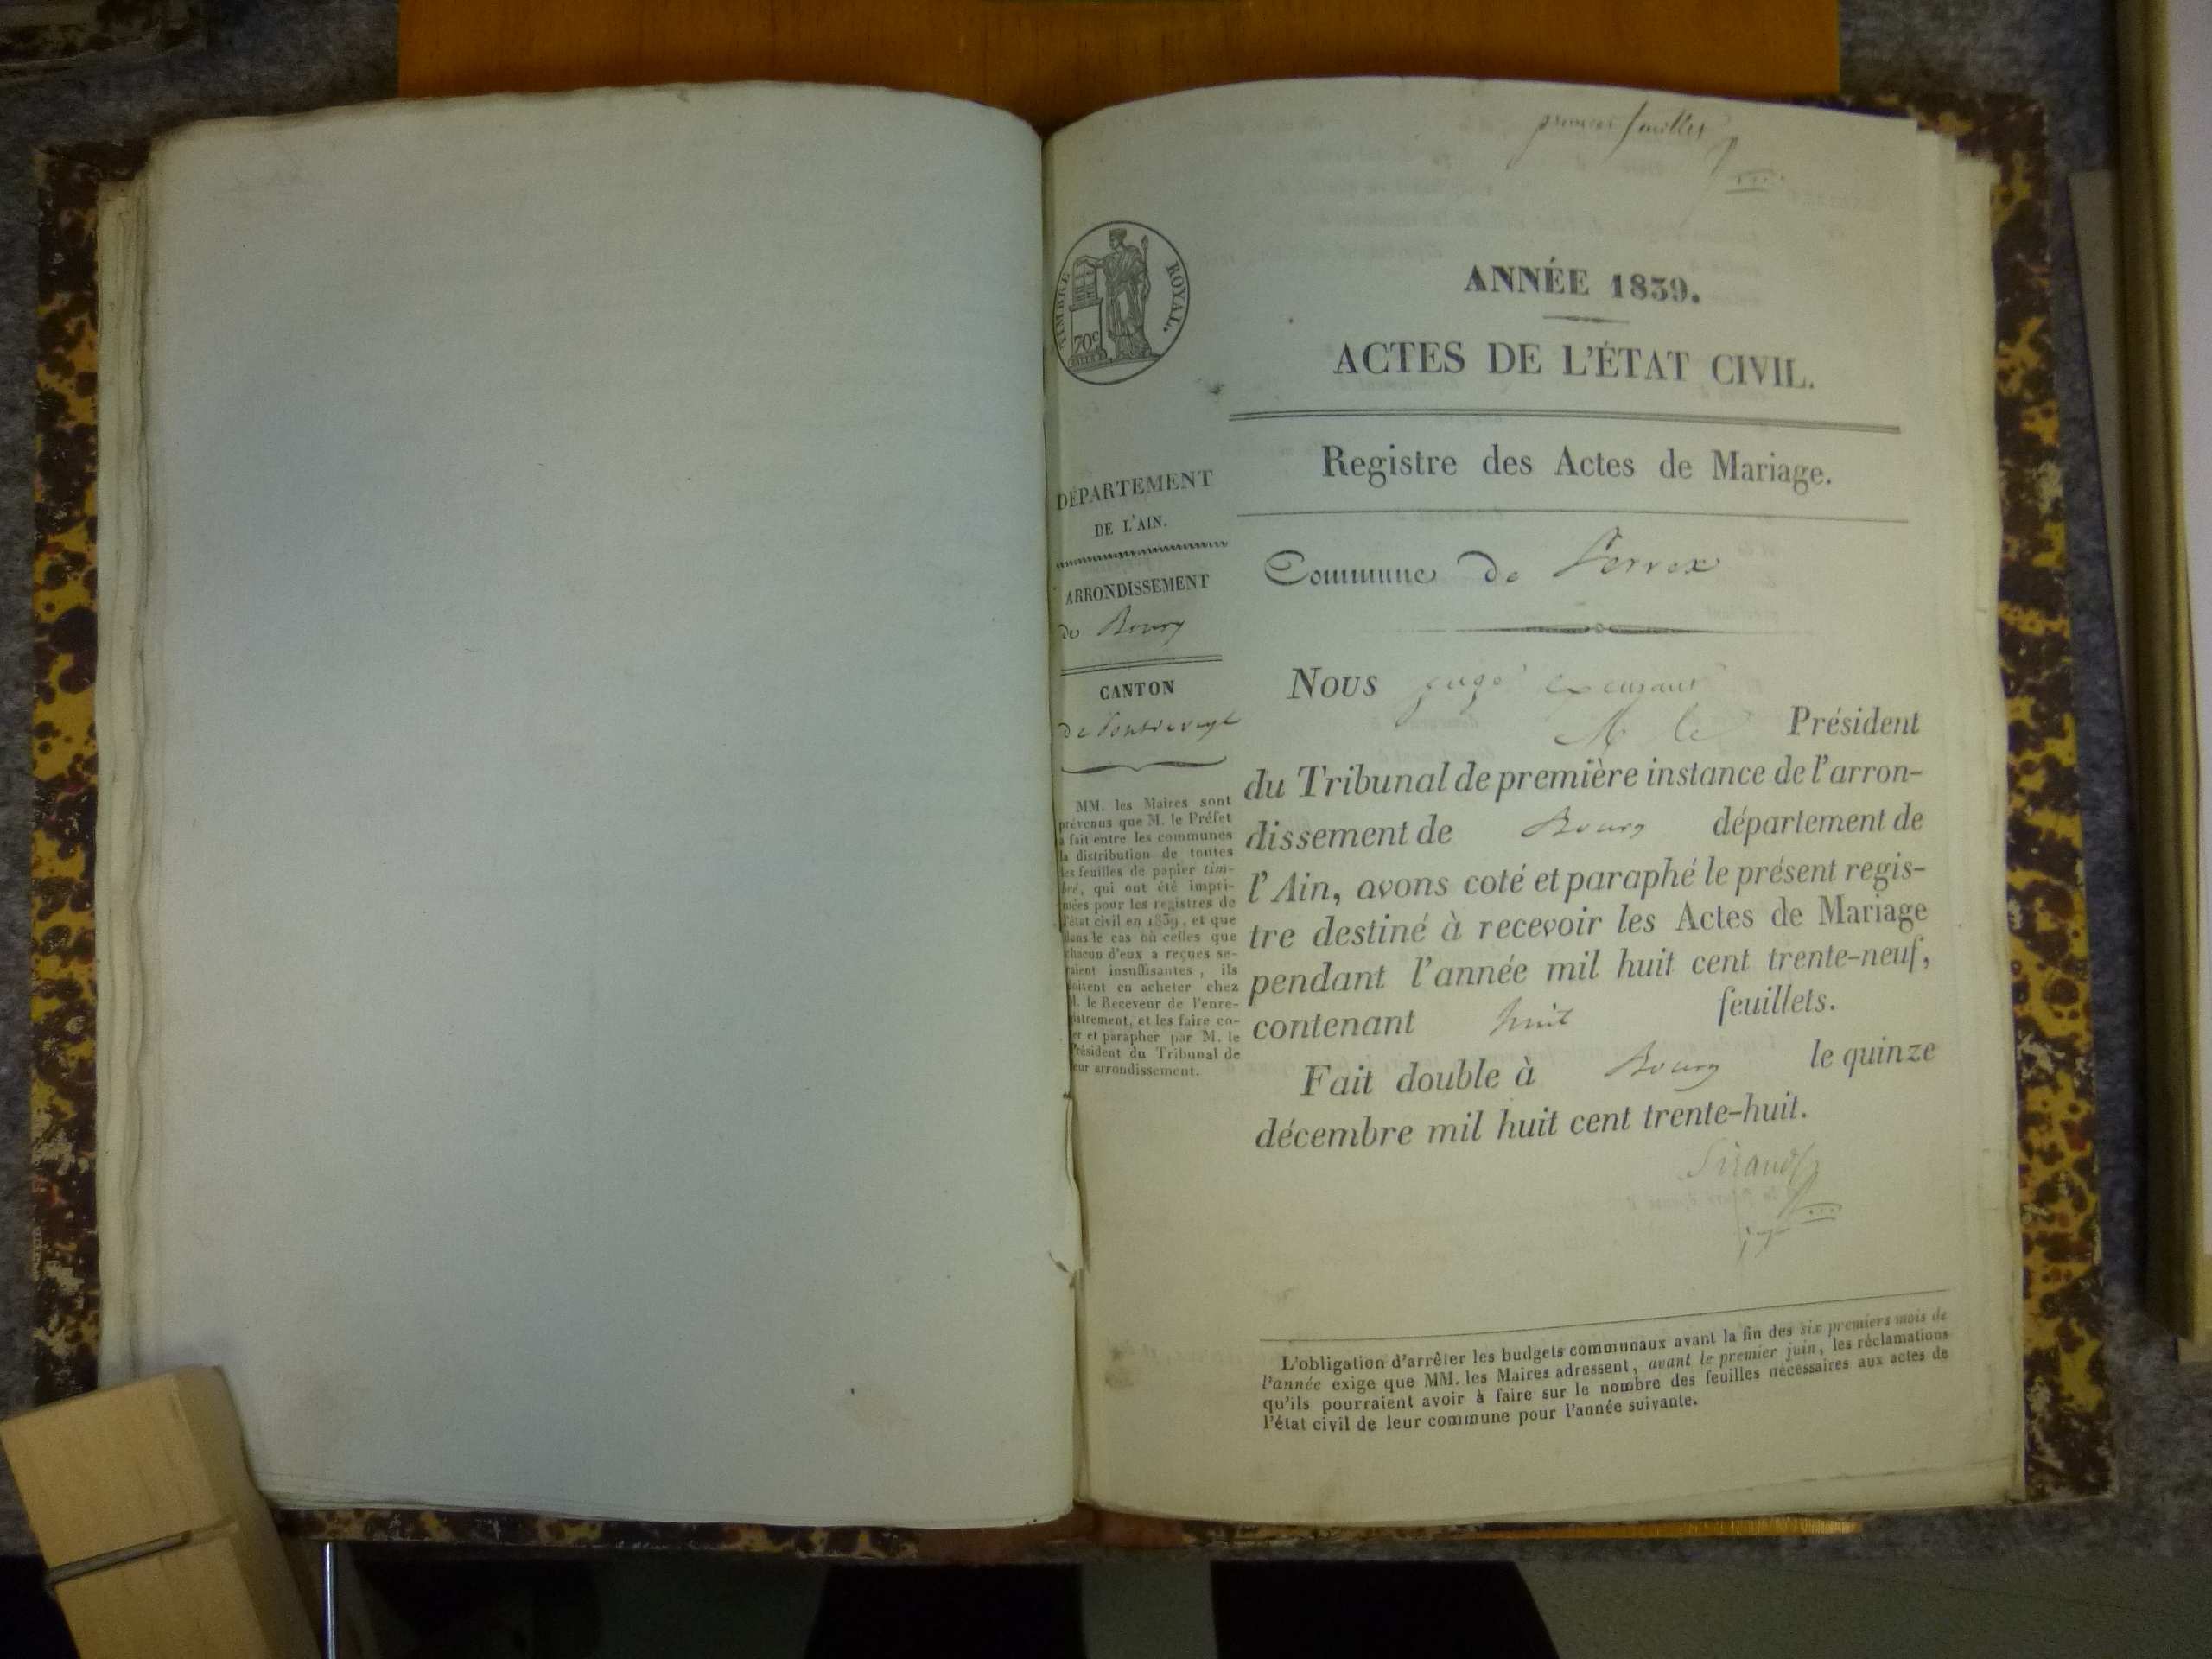 premier feuillet
TIMBRE ROYAL.
70c
ANNÉE 1839.
ACTES DE L'ÉTAT CIVIL.
Registre des Actes de Mariage.
DÉPARTEMENT
DE L'AIN.
ARRONDISSEMENT
de Bourg
CANTON
de Pontdeveyle
MM. les Maires sont
prévenus que M. le Préfet
a fait entre les communes
la distribution de toutes
les feuilles de papier tim-
bré, qui ont été impri-
mées pour les registres de
l'état civil en 1839, et que
dans le cas où celles que
chacun d'eux a reçues se-
raient insuffisantes, ils
doivent en acheter chez
M. le Receveur de l'enre-
gistrement, et les faire co-
ter et parapher par M. le
Président du Tribunal de
leur arrondissement.
Commune de Perrex
Nous juge excusant
M le Président
du Tribunal de première instance de l'arron-
dissement de Bourg département de
l'Ain, avons coté et paraphé le présent regis-
tre destiné à recevoir les Actes de Mariage
pendant l'année mil huit cent trente-neuf,
contenant huit feuillets.
Fait double à Bourg le quinze
décembre mil huit cent trente-huit.
Sirand
L'obligation d'arrêter les budgets communaux avant la fin des six premiers mois de
l'année exige que MM. les Maires adressent, avant le premier juin, les réclamations
qu'ils pourraient avoir à faire sur le nombre des feuilles nécessaires aux actes de
l'état civil de leur commune pour l'année suivante.